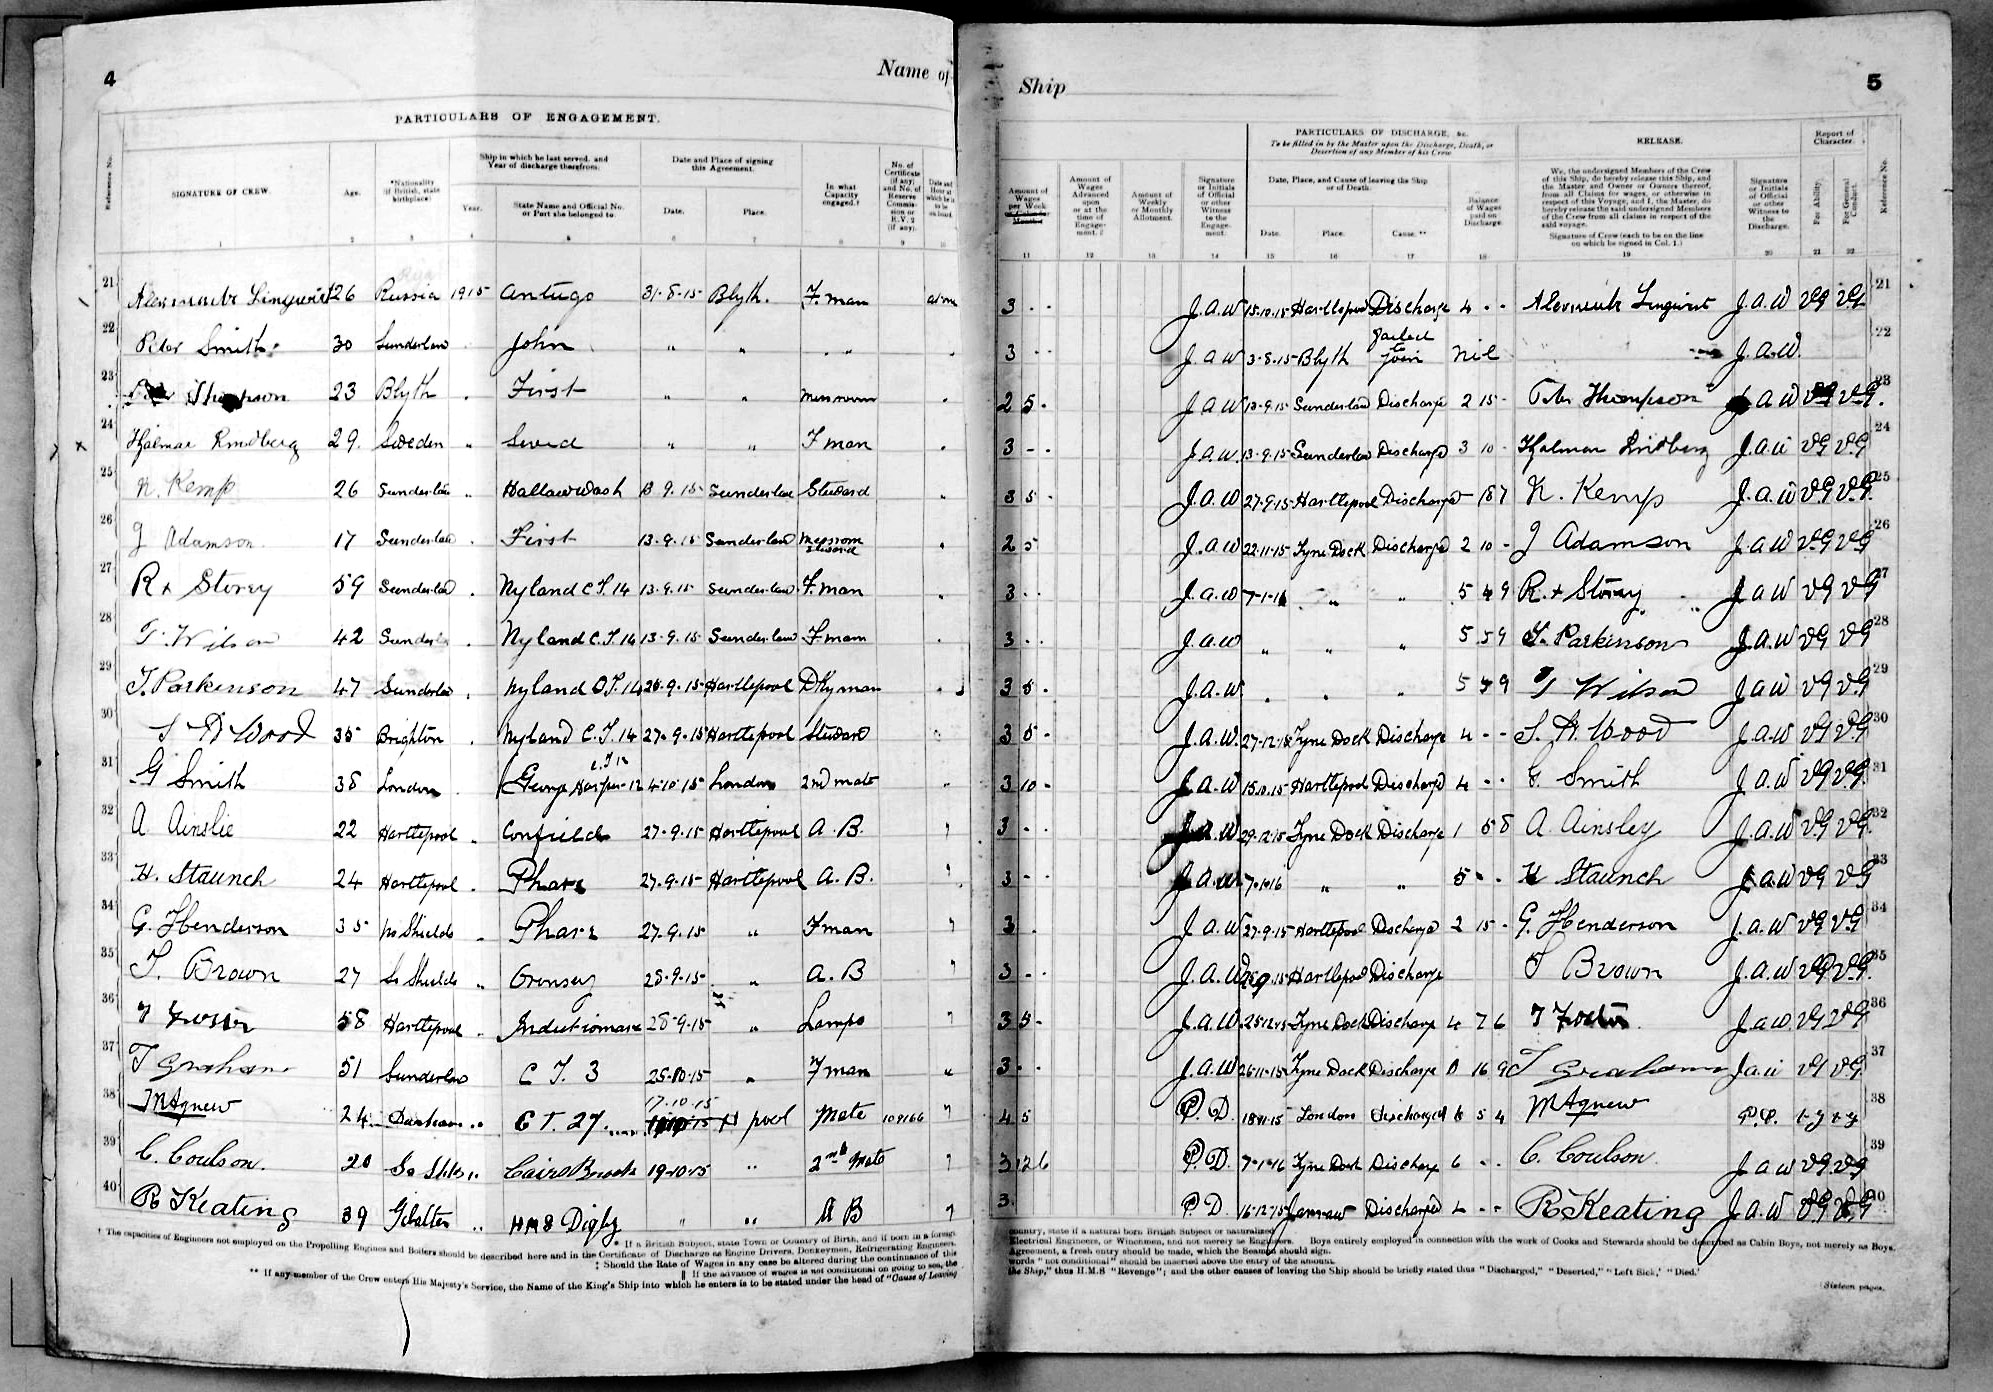 4
Name of
PARTICULARS OF ENGAGEMENT.
Reference No.
SIGNATURE OF CREW.
Age.
*Nationality (if British, state birthplace)
Ship in which he last served, and Year of discharge therefrom.
Year.
State Name and Official No. or Port she belonged to.
Date and Place of signing this Agreement.
Date.
Place.
In what Capacity engaged.†
No. of Certificate (if any) and No. of Reserve Commission or R.V.2 (if any).
Date and Hour at which he is to be on board.
1 2 3 4 5 6 7 8 9 10
21 Alexander Linquist 26 Russia 1915 Antugo 31-8-15 Blyth. F.man
22 Peter Smith 30 Sunderland John " " "
23 Thompson 23 Blyth First " " Messroom
24 Hjalmar Lindberg 29. Sweden " Swed " " F man
25 N. Kemp 26 Sunderland " 13 9.15 Sunderland Steward
26 J Adamson 17 Sunderland First 13-9.15 Sunderland Messroom Steward
27 R + Storey 59 Sunderland Nyland C.T. 14 13.9.15 Sunderland F.man
28 T. Wilson 42 Sunderland Nyland C.T. 14 13-9.15 Sunderland F.man
29 T. Parkinson 47 Sunderland Nyland C.T. 14 Hartlepool Dkyman
30 Wood 35 Brighton Nyland C.T. 14 27-9-15 Hartlepool Steward
31 G Smith 38 London George Harper 4-10-15 London 2nd mate
32 A Ainslie 22 Hartlepool Confield 27-9-15 Hartlepool A.B.
33 H. Staunch 24 Hartlepool Phare 27-9-15 Hartlepool A.B.
34 G. Henderson 35 Shields Phare 27-9.15 " Fman
35 T. Brown 27 So Shields " 28-9-15 " A.B
36 58 Hartlepool 28-9-15 " Lamps
37 T Graham 51 Sunderland C T. 3 " Fman
38 M Agnew 24 C T. 27. 17.10.15 H pool Mate
39 C. Coulson. 20 So Shlds Cairo Brook 19-10-15 " 2nd Mate
40 R Keating 39 HMS Digby " " A B
† The capacities of Engineers not employed on the Propelling Engines and Boilers should be described here and in the Certificate of Discharge as Engine Drivers, Donkeymen, Refrigerating Engineers,
* If a British Subject, state Town or Country of Birth, and if born in a foreign
‡ Should the Rate of Wages in any case be altered during the continuance of this
‖ If the advance of wages is not conditional on going to sea, the
** If any member of the Crew enters His Majesty's Service, the Name of the King's Ship into which he enters is to be stated under the head of "Cause of Leaving
Ship
5
PARTICULARS OF DISCHARGE, &c.
To be filled in by the Master upon the Discharge, Death, or Desertion of any Member of his Crew
RELEASE.
Report of Character.
Amount of Wages per Week or Calendar Month‡
Amount of Wages Advanced upon or at the time of Engagement.‖
Amount of Weekly or Monthly Allotment.
Signature or Initials of Official or other Witness to the Engagement.
Date, Place, and Cause of leaving the Ship or of Death.
Date.
Place.
Cause.**
Balance of Wages paid on Discharge.
We, the undersigned Members of the Crew of this Ship, do hereby release this Ship, and the Master and Owner or Owners thereof, from all Claims for wages, or otherwise in respect of this Voyage, and I, the Master, do hereby release the said undersigned Members of the Crew from all claims in respect of the said voyage.
Signature of Crew (each to be on the line on which he signed in Col. 1.)
Signature or Initials of Official or other Witness to the Discharge.
For Ability.
For General Conduct.
Reference No.
11 12 13 14 15 16 17 18 19 20 21 22
3 - - J.A.W 15.10.15 Hartlepool Discharge 4 - - J.A.W VG VG 21
3 - - J.A.W 3-8-15 Blyth failed to join Nil J.A.W. 22
2 5 - J.A.W 13-9.15 Sunderland Discharge 2 15 - Peter Thompson J A W VG VG 23
3 - - J.A.W. 13-9.15 Sunderland Discharged 3 10 - Hjalmar Lindberg J.A.W VG VG 24
3 5 - J.A.W 27-9.15 Hartlepool Discharged - 18 7 N. Kemp J.A.W VG VG 25
2 5 J.A.W 22-11-15 Tyne Dock Discharged 2 10 - J Adamson J.A.W VG VG 26
3 - - J.A.W 7-1-16 " " R. + Storey J A W VG VG 27
3 - - J.A.W " " " 5 5 9 T. Parkinson J.A.W VG VG 28
3 5 - J.A.W " " " T Wilson J A W VG VG 29
3 5 - J.A.W. Tyne Dock Discharge 4 - - Wood J.A.W VG VG 30
3 10 - J.A.W 15.10.15 Hartlepool Discharged 4 - - G. Smith J A W VG VG 31
3 - - J.A.W 29-12-15 Tyne Dock Discharge 1 5 8 A Ainsley J.A.W VG VG 32
3 - - J.A.W " " 5 - - H Staunch J A W VG VG 33
3 J.A.W 27-9-15 Hartlepool Discharged 2 15 - G. Henderson J.A.W VG VG 34
3 - - J.A.W Hartlepool Discharge T Brown J.A.W VG VG 35
3 5 - J.A.W Tyne Dock Discharge 4 7 6 J.A.W. VG VG 36
3 - - J.A.W 26-11-15 Tyne Dock Discharge 16 9 T Graham J.A.W VG VG 37
4 5 P.D. London Discharged 5 4 M Agnew P.D. 38
3 12 6 P.D. 7-1-16 Tyne Dock Discharge 6 - - C. Coulson. J A W VG VG 39
3. P D. 16-12-15 Jarrow Discharged R Keating J.A.W VG VG 40
country, state if a natural born British Subject or naturalized.
Electrical Engineers, or Winchmen, and not merely as Engineers. Boys entirely employed in connection with the work of Cooks and Stewards should be described as Cabin Boys, not merely as Boys.
Agreement, a fresh entry should be made, which the Seaman should sign.
words "not conditional" should be inserted above the entry of the amount.
the Ship," thus H.M.S "Revenge"; and the other causes of leaving the Ship should be briefly stated thus "Discharged," "Deserted," "Left Sick," "Died."
[Sixteen pages.